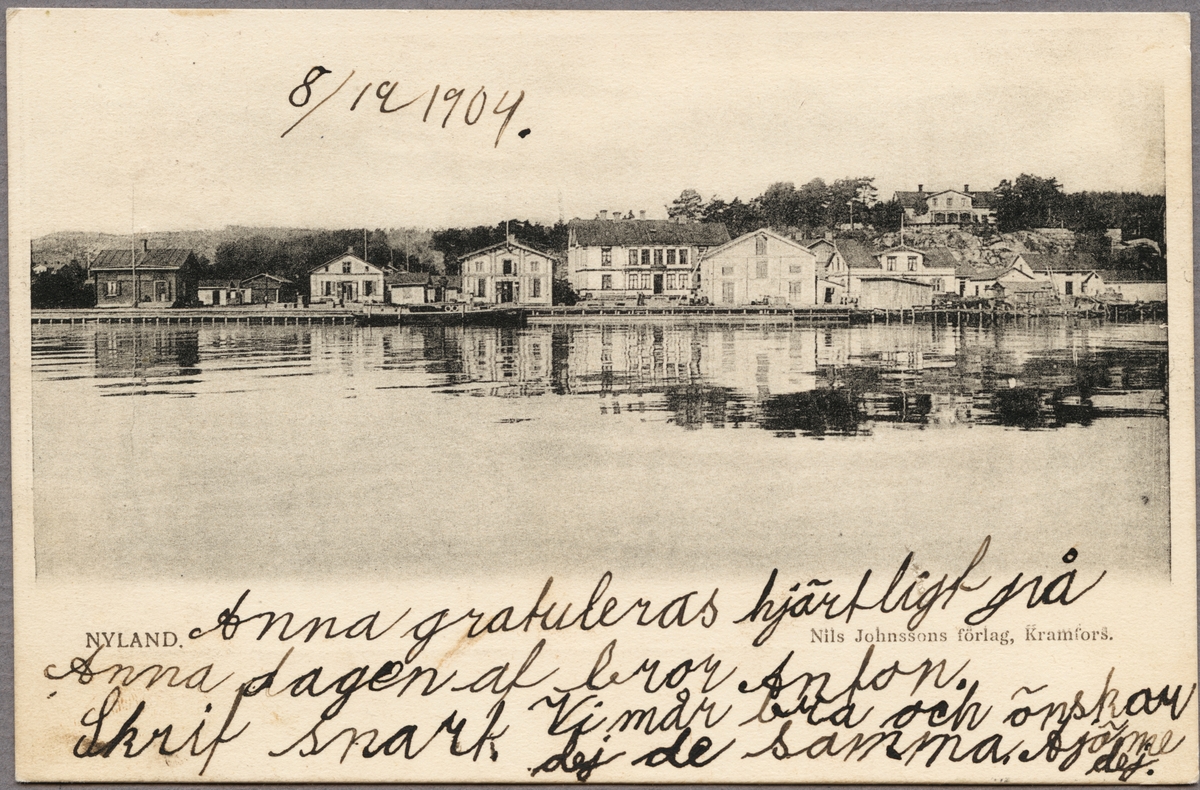 8/12 1904.
Anna gratuleras hjärtligt på
NYLAND.
Nils Johnssons förlag, Kramfors.
Anna dagen af bror Anton.
Skrif snart. Vi mår bra och önskar
dej de samma. Ajöme
dej.